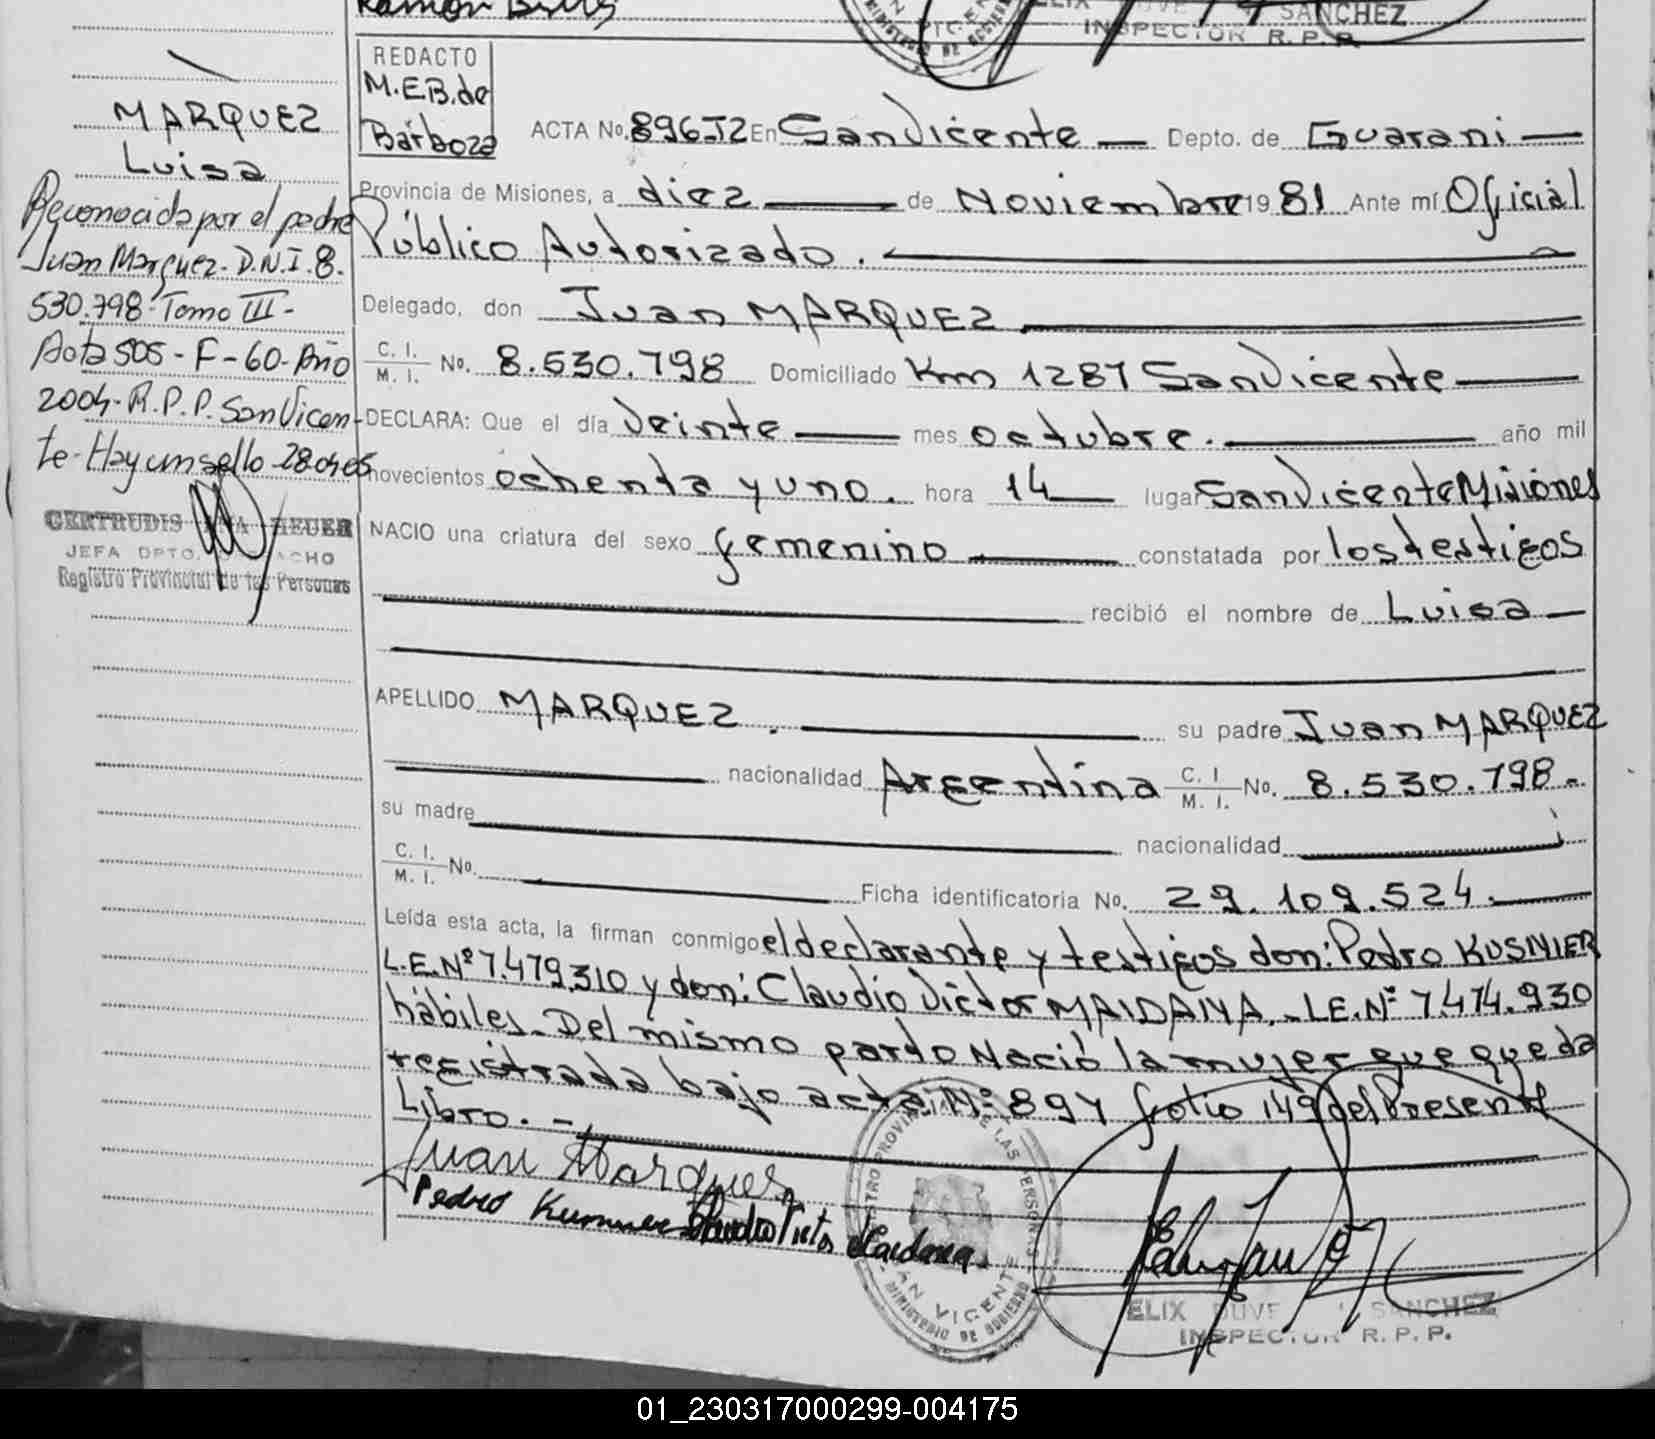 INSPECTOR R. P. P.
SANCHEZ
REDACTO
M.E.B. de
Bárboza
MARQUEZ
Luisa
Reconocida por el padre
Juan Marquez - D.N.I. 8.
530.798 - Tomo III -
Acta 505 - F - 60 - Año
2004 - R.P.P. San Vicen-
te - Hay un sello
GERTRUDIS HEUER
JEFA DPTO.
Registro Provincial de las Personas
ACTA No. 896 T2 En San Vicente — Depto. de Guarani —
Provincia de Misiones, a diez — de Noviembre 1981 Ante mí Oficial
Público Autorizado. —
Delegado, don Juan MARQUEZ —
C. I. / M. I. No. 8.530.798 Domiciliado Km 1287 San Vicente —
DECLARA: Que el día veinte — mes octubre. — año mil
novecientos ochenta y uno. hora 14 — lugar San Vicente Misiones
NACIO una criatura del sexo femenino — constatada por los testigos
— recibió el nombre de Luisa —
APELLIDO MARQUEZ. — su padre Juan MARQUEZ
— nacionalidad Argentina C. I. / M. I. No. 8.530.798-
su madre — nacionalidad —
C. I. / M. I. No. — Ficha identificatoria No. 29.109.524. —
Leída esta acta, la firman conmigo el declarante y testigos don: Pedro KUSNIER
L.E.Nº 7.479.310 y don: Claudio Victor MAIDANA. - L.E. Nº 7.474.930
hábiles - Del mismo parto Nació la mujer que queda
registrada bajo acta Nº 897 folio 149 del Presente
Libro. - —
Juan Marques
Pedro Claudio Victor Maidana
SAN VICENTE
MINISTERIO DE GOBIERNO
SANCHEZ
INSPECTOR R. P. P.
01_230317000299-004175